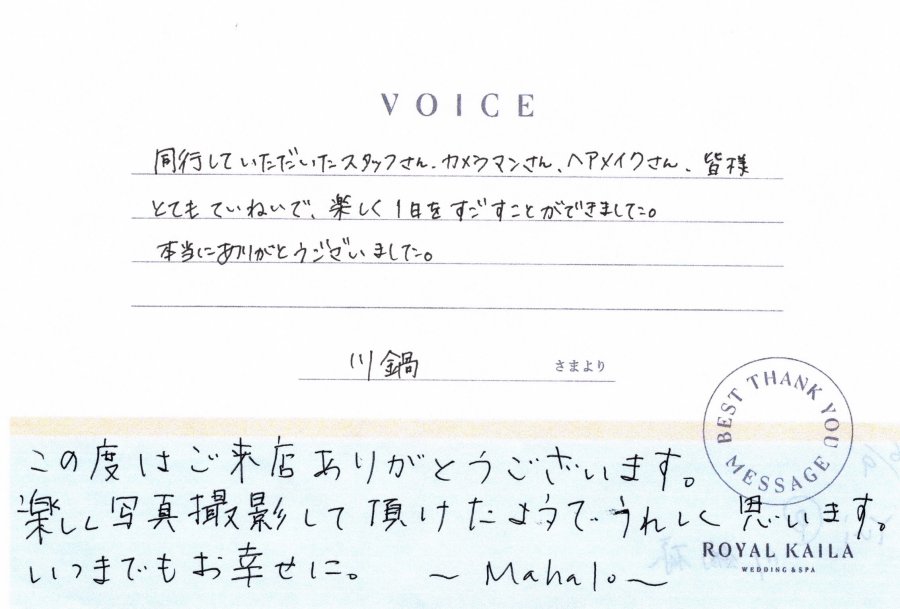 VOICE
同行していただいたスタッフさん、カメラマンさん、ヘアメイクさん、皆様
とてもていねいで、楽しく1日をすごすことができました。
本当にありがとうございました。
川鍋 さまより
BEST THANK YOU
MESSAGE
この度はご来店ありがとうございます。
楽しく写真撮影して頂けたようでうれしく思います。
いつまでもお幸せに。 〜Mahalo〜
ROYAL KAILA
WEDDING & SPA